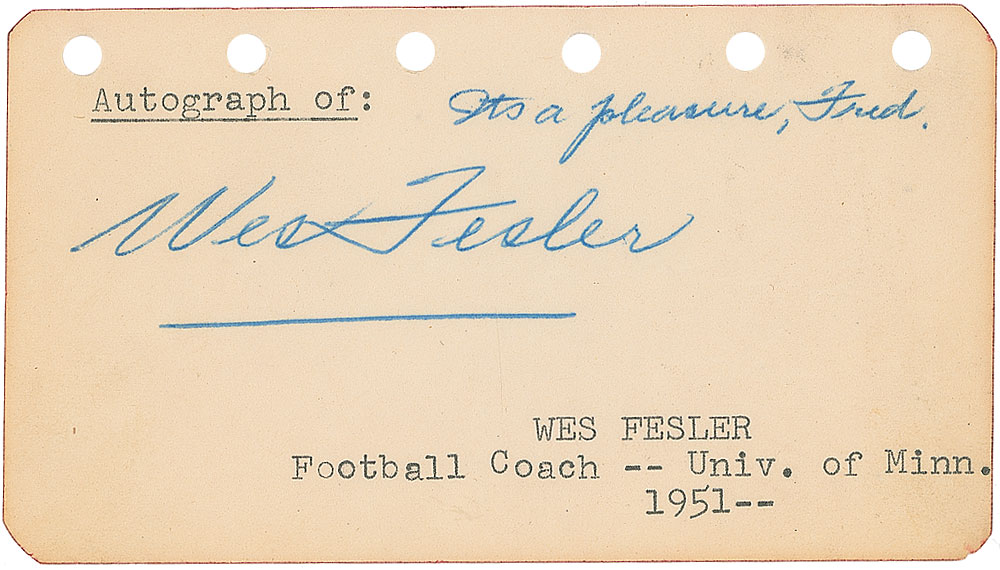 Autograph of: Its a pleasure, Fred.
Wes Fesler
WES FESLER
Football Coach -- Univ. of Minn.
1951--